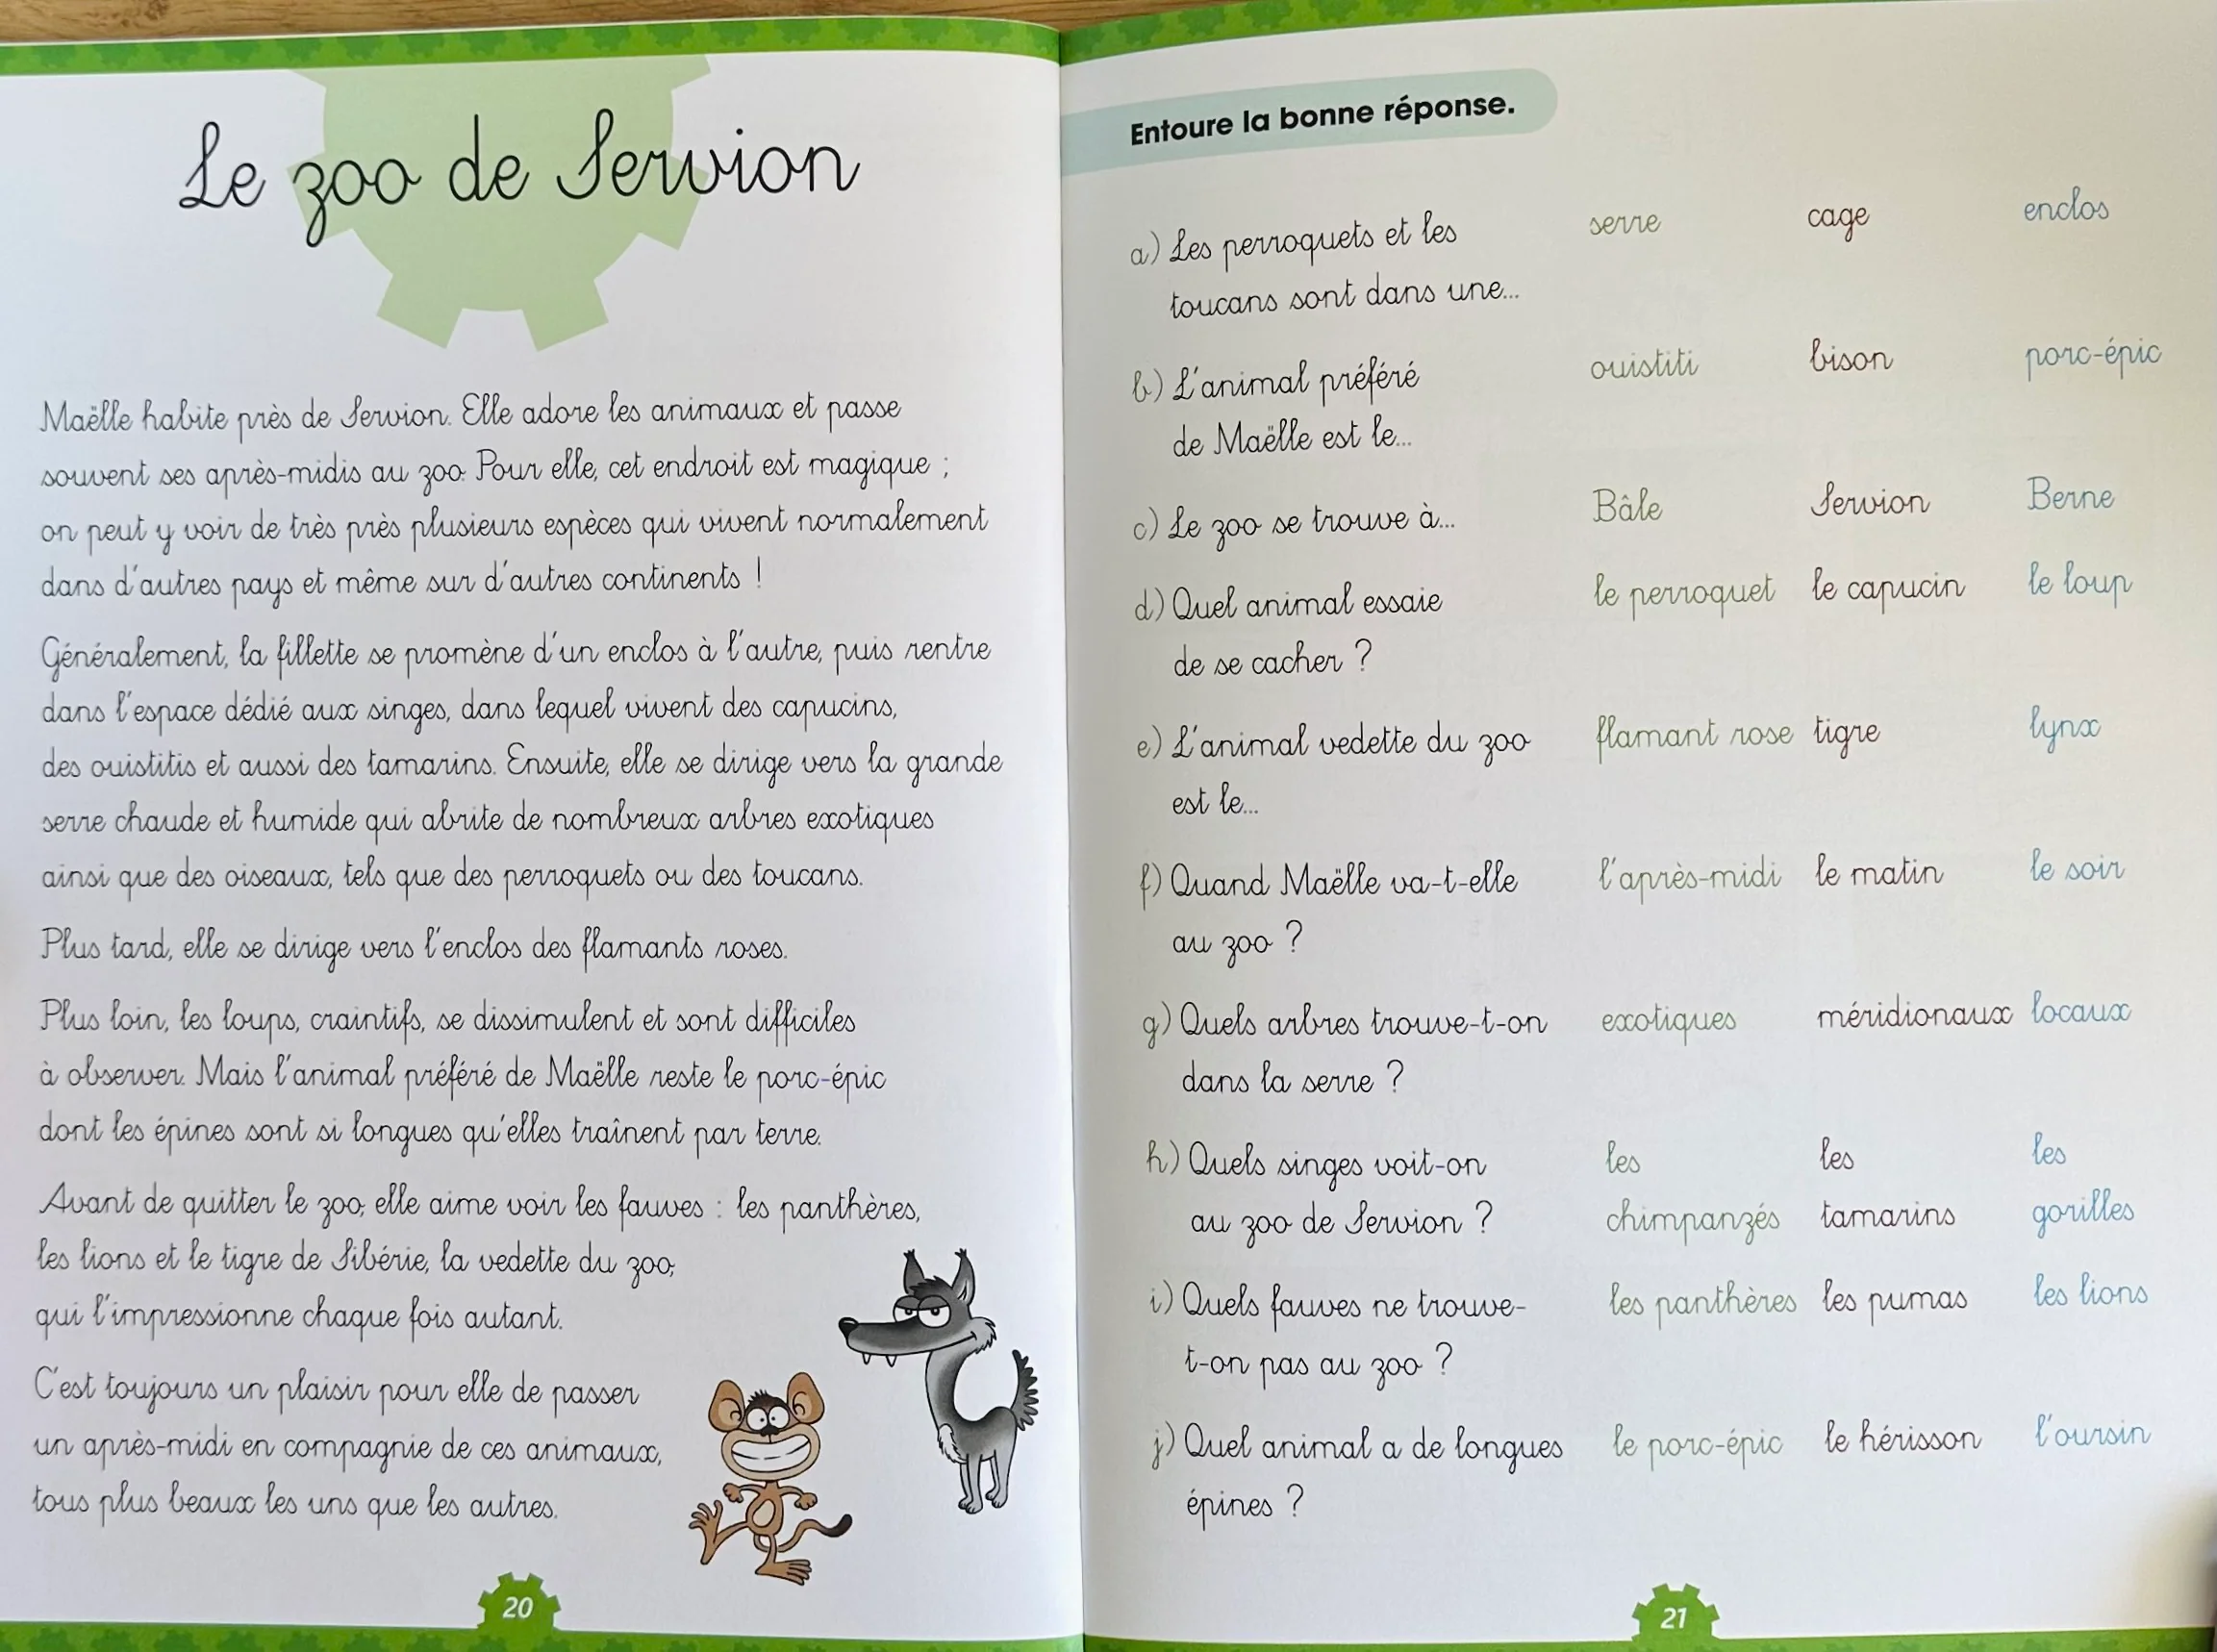 Le zoo de Servion
Maëlle habite près de Servion. Elle adore les animaux et passe
souvent ses après-midis au zoo. Pour elle, cet endroit est magique ;
on peut y voir de très près plusieurs espèces qui vivent normalement
dans d'autres pays et même sur d'autres continents !
Généralement, la fillette se promène d'un enclos à l'autre, puis rentre
dans l'espace dédié aux singes, dans lequel vivent des capucins,
des ouistitis et aussi des tamarins. Ensuite, elle se dirige vers la grande
serre chaude et humide qui abrite de nombreux arbres exotiques
ainsi que des oiseaux, tels que des perroquets ou des toucans.
Plus tard, elle se dirige vers l'enclos des flamants roses.
Plus loin, les loups, craintifs, se dissimulent et sont difficiles
à observer. Mais l'animal préféré de Maëlle reste le porc-épic
dont les épines sont si longues qu'elles traînent par terre.
Avant de quitter le zoo, elle aime voir les fauves : les panthères,
les lions et le tigre de Sibérie, la vedette du zoo,
qui l'impressionne chaque fois autant.
C'est toujours un plaisir pour elle de passer
un après-midi en compagnie de ces animaux,
tous plus beaux les uns que les autres.
20
Entoure la bonne réponse.
a) Les perroquets et les serre cage enclos
toucans sont dans une...
b) L'animal préféré ouistiti bison porc-épic
de Maëlle est le...
c) Le zoo se trouve à... Bâle Servion Berne
d) Quel animal essaie le perroquet le capucin le loup
de se cacher ?
e) L'animal vedette du zoo flamant rose tigre lynx
est le...
f) Quand Maëlle va-t-elle l'après-midi le matin le soir
au zoo ?
g) Quels arbres trouve-t-on exotiques méridionaux locaux
dans la serre ?
h) Quels singes voit-on les les les
au zoo de Servion ? chimpanzés tamarins gorilles
i) Quels fauves ne trouve- les panthères les pumas les lions
t-on pas au zoo ?
j) Quel animal a de longues le porc-épic le hérisson l'oursin
épines ?
21